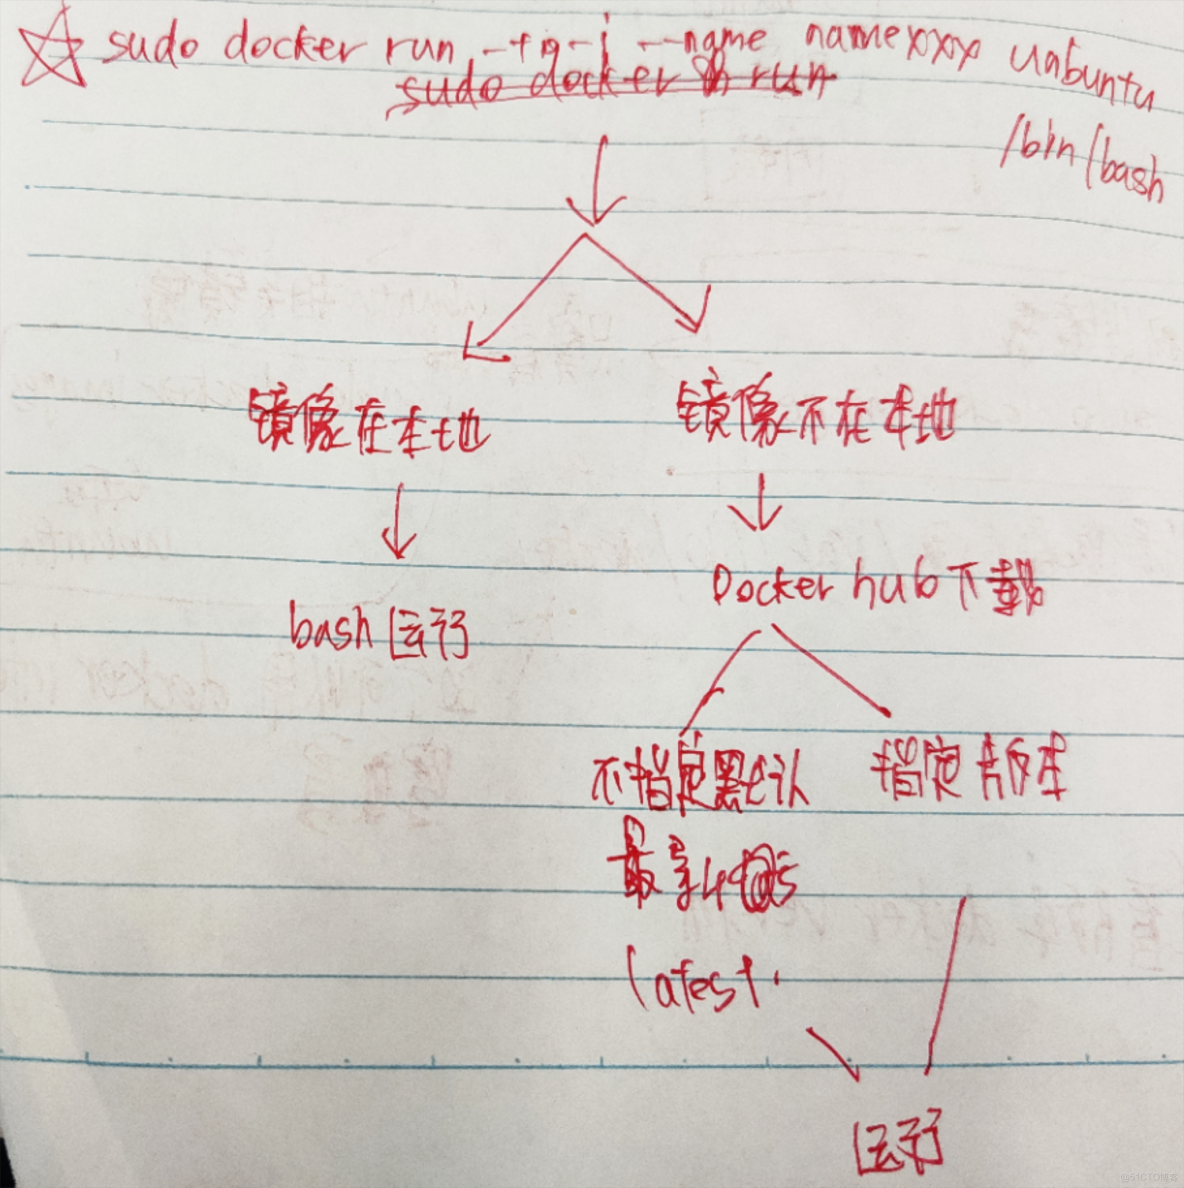 sudo docker run -t -i --name namexxx unbuntu
sudo docker run
/bin/bash
镜像在本地
镜像不在本地
bash 运行
Docker hub 下载
不指定默认
指定版本
最
latest
运行
@51CTO博客